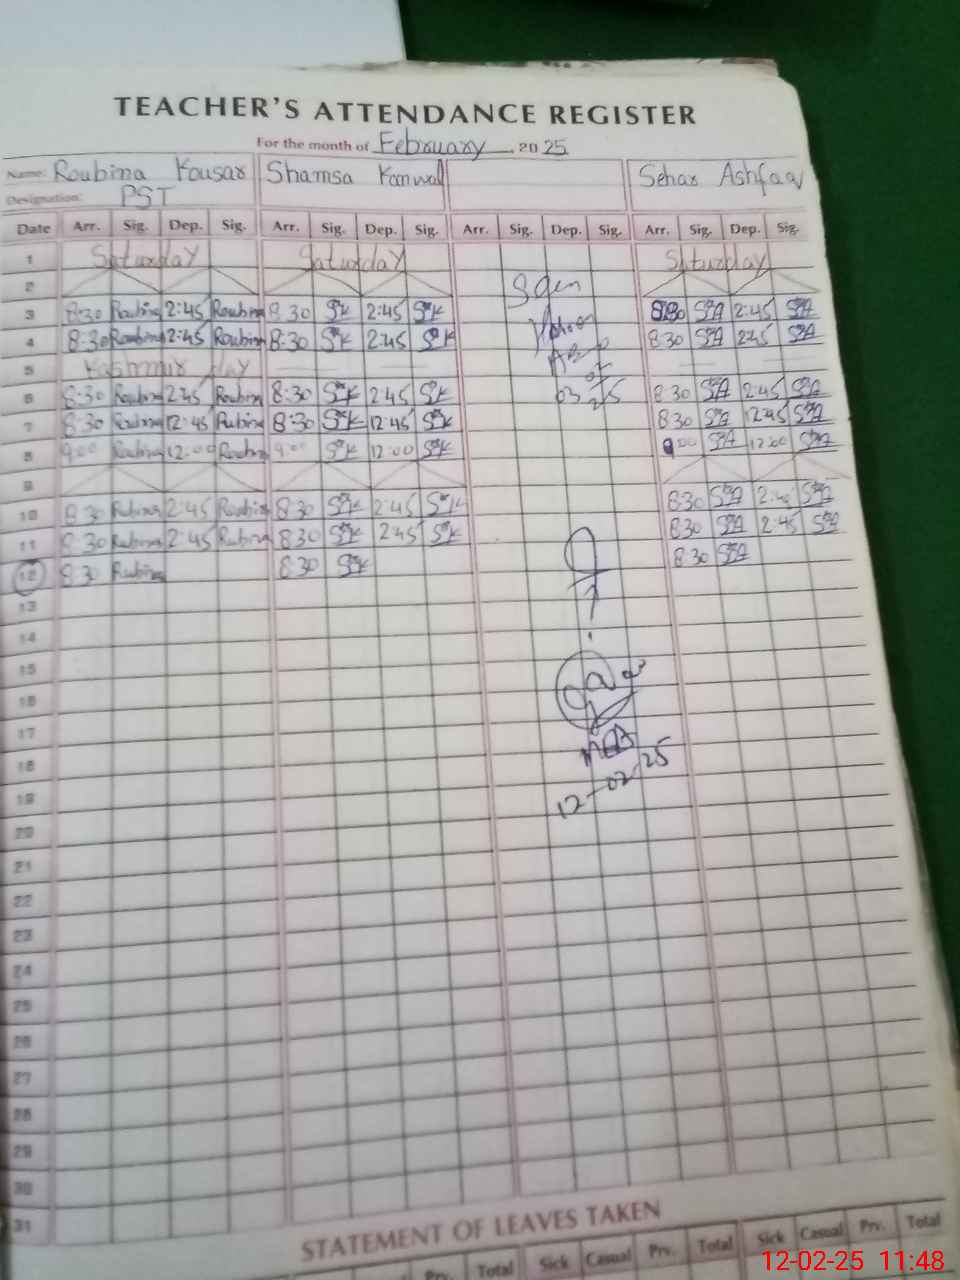 TEACHER'S ATTENDANCE REGISTER
For the month of February 2025
Name: Roubina Kousar Shamsa Kanwal Sehar Ashfaq
Designation: PST
Date Arr. Sig. Dep. Sig. Arr. Sig. Dep. Sig. Arr. Sig. Dep. Sig. Arr. Sig. Dep. Sig.
1 Saturday Saturday Saturday
2
3 8:30 Roubina 2:45 Roubina 8:30 2:45 8:30 2:45
4 8:30 Roubina 2:45 Roubina 8:30 2:45 8:30 2:45
5 Kashmir day
6 8:30 Roubina 2:45 Roubina 8:30 2:45 8:30 2:45
7 8:30 Roubina 12:45 Roubina 8:30 12:45 8:30 12:45
8 9:00 Roubina 12:00 Roubina 9:00 12:00 9:00 12:00
9
10 8:30 Rubina 2:45 Roubina 8:30 2:45 8:30 2:45
11 8:30 Rubina 2:45 Rubina 8:30 2:45 8:30 2:45
12 8:30 Rubina 8:30 8:30
13
14
15
16
17
18
12-02-25
19
20
21
22
23
24
25
26
27
28
29
30
31
STATEMENT OF LEAVES TAKEN
Prv. Total Sick Casual Prv. Total Sick Casual Prv. Total
12-02-25 11:48